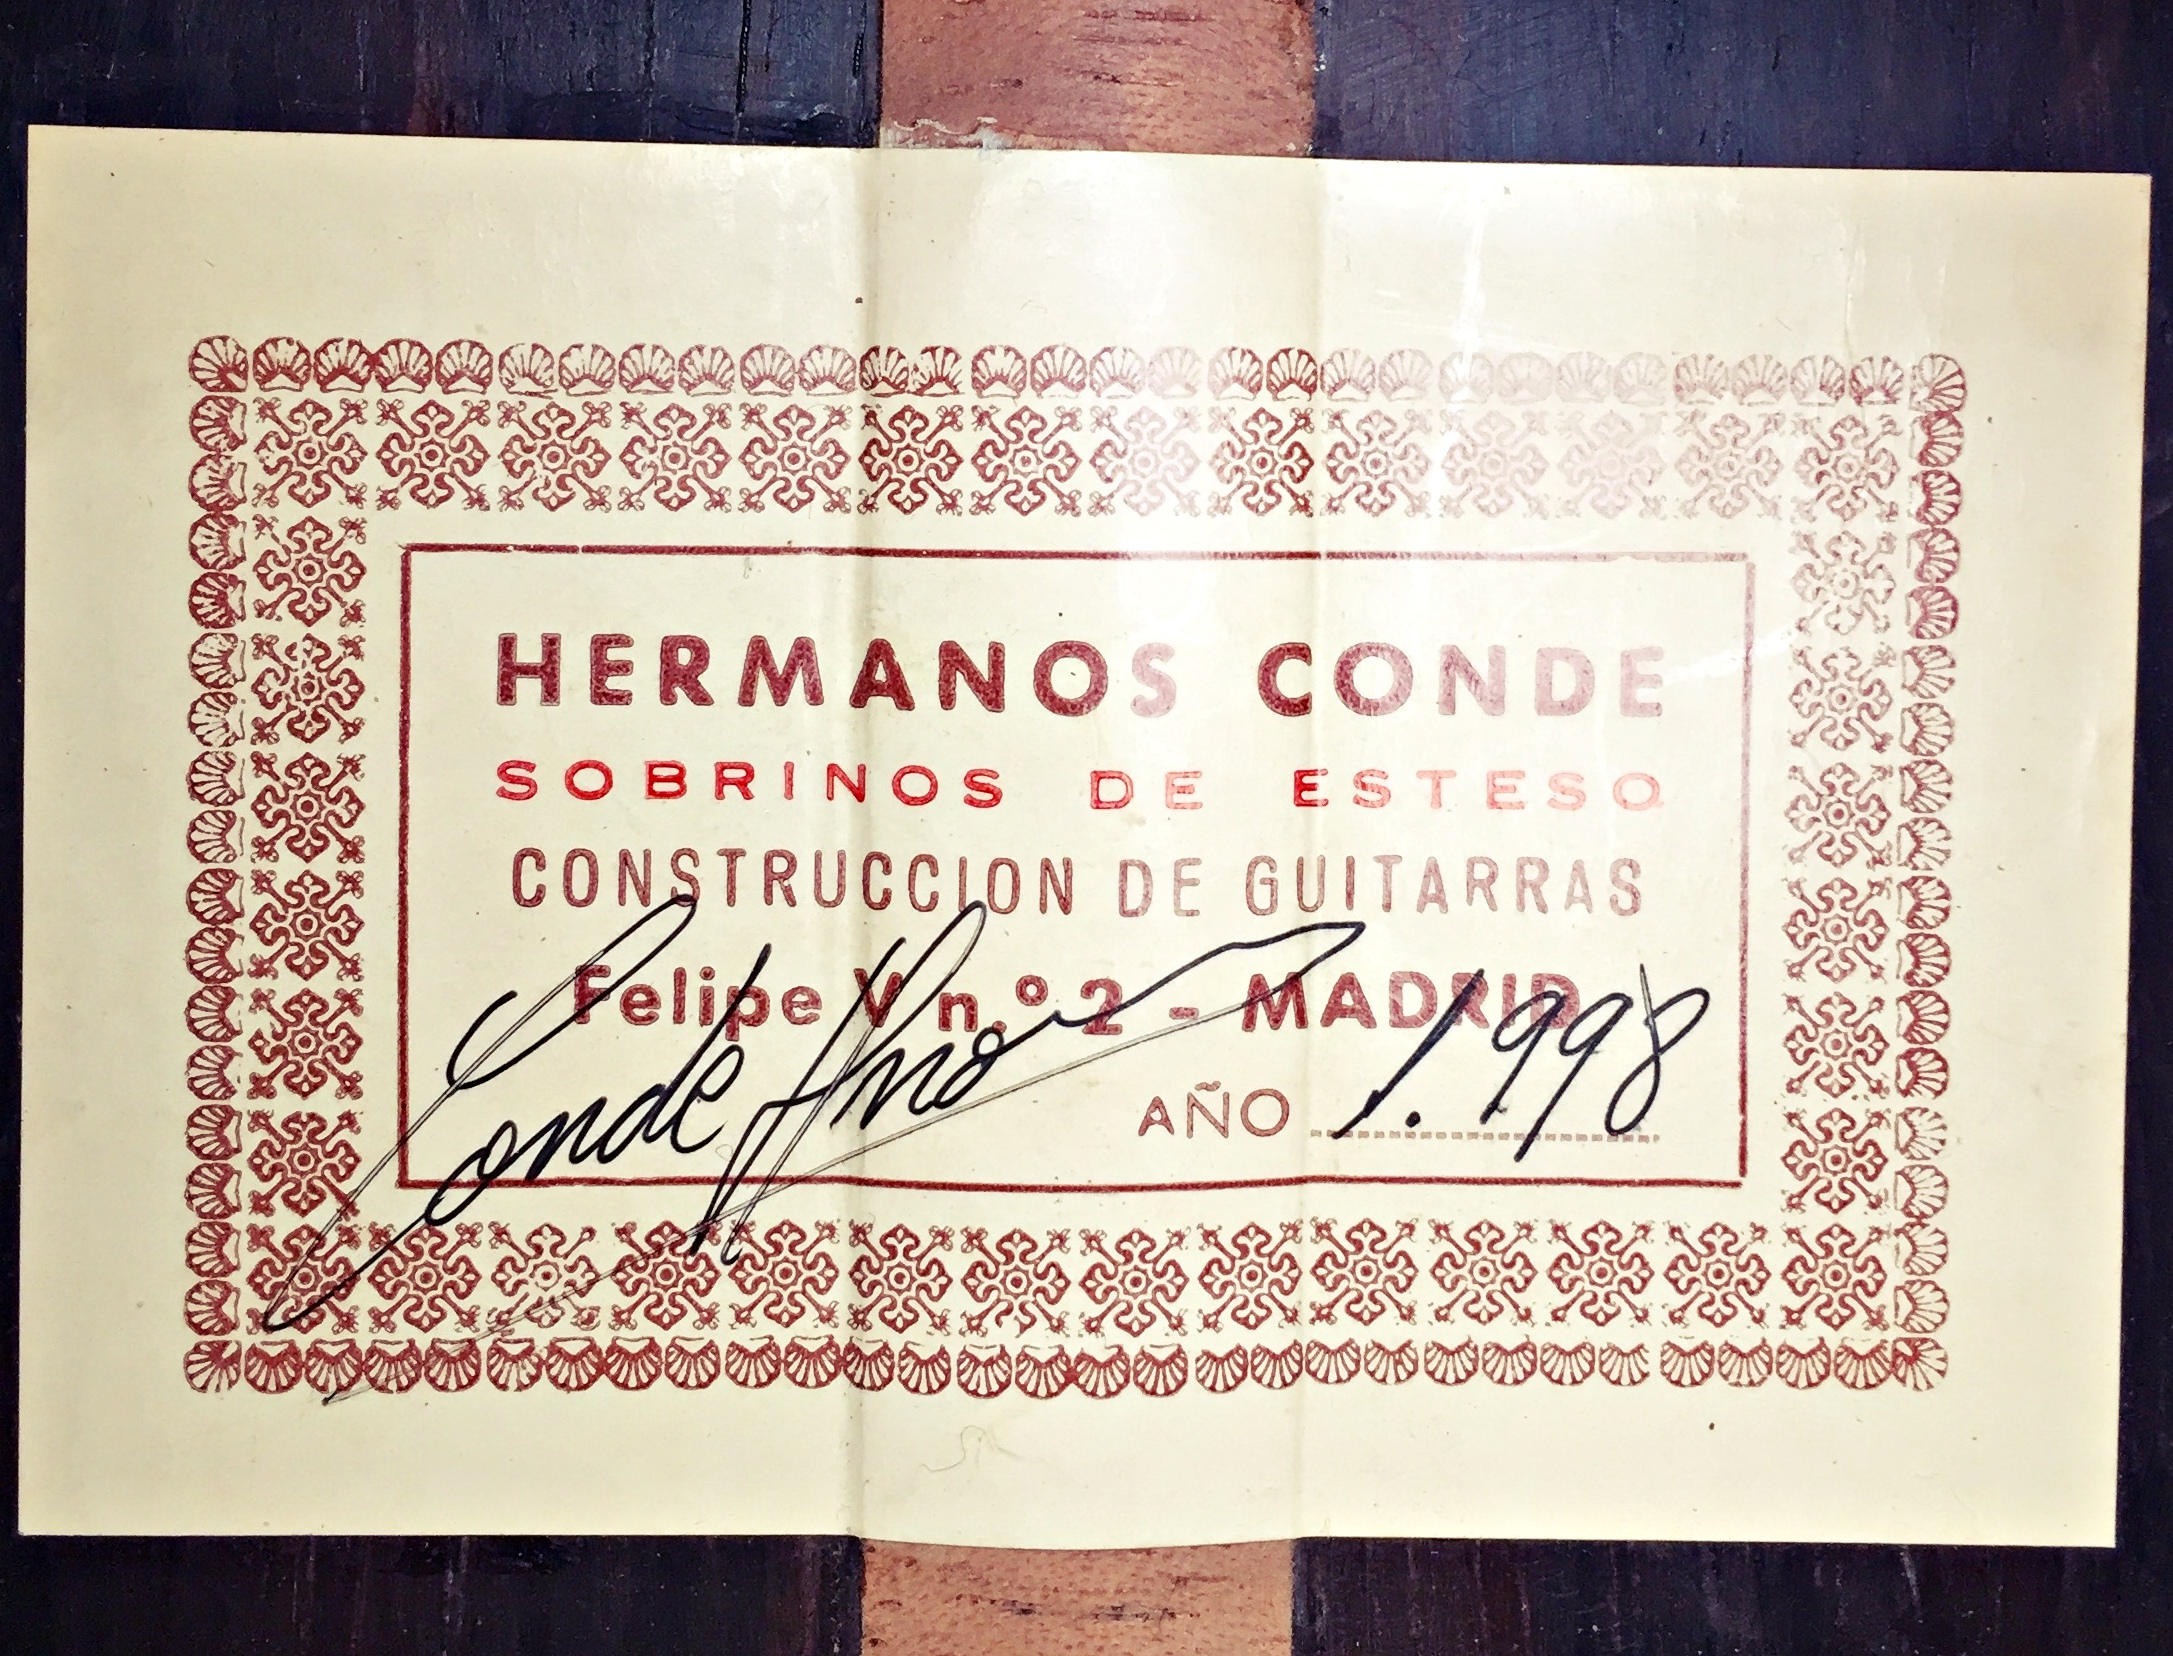 HERMANOS CONDE
SOBRINOS DE ESTESO
CONSTRUCCION DE GUITARRAS
Felipe V n.º 2 - MADRID
Conde Hno
AÑO 1.998